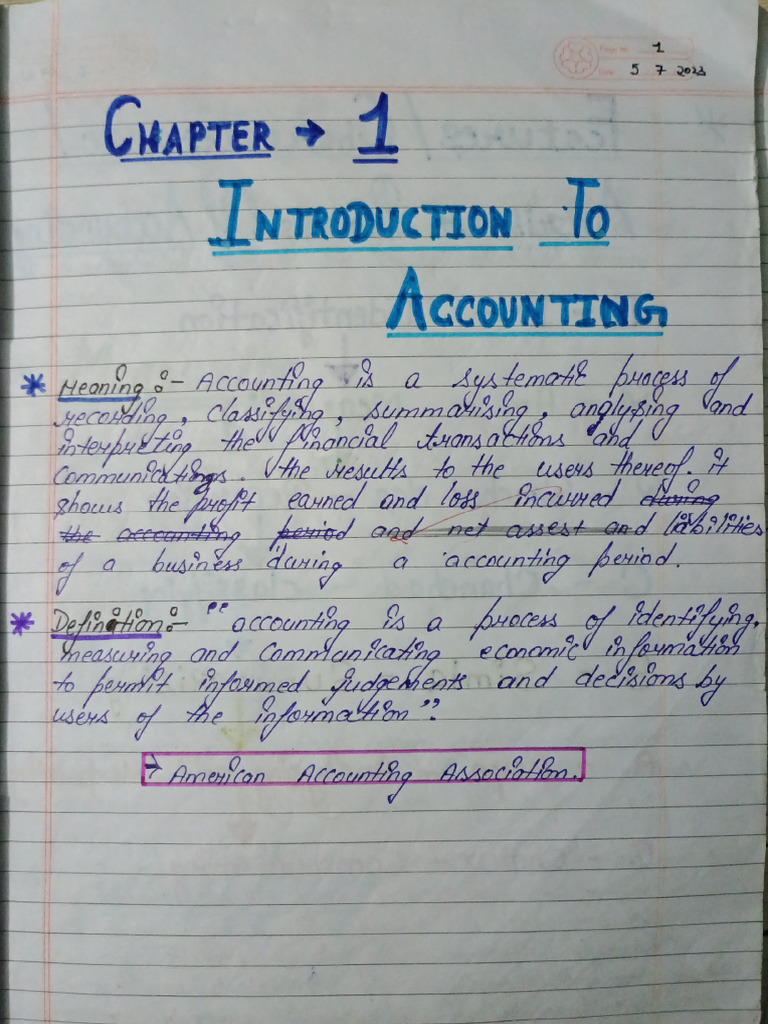 Page No. 1
Date 5 7 2023
CHAPTER → 1
INTRODUCTION TO
ACCOUNTING
* Meaning :- Accounting is a systematic process of
recording, classifying, summarising, anglysing and
interpreting the financial transactions and
Communications. the results to the users thereof. it
shows the profit earned and loss incurred during
the accounting period and net assest and liabilities
of a business during a accounting period.
* Definition:- " accounting is a process of identifying,
measuring and communicating economic information
to permit informed judgements and decisions by
users of the information".
→ American Accounting Association.